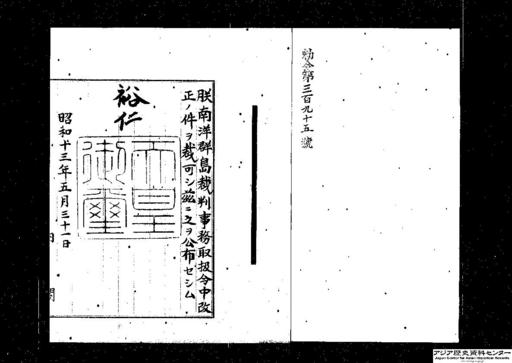 勅令第三百九十五號
朕南洋群島裁判事務取扱令中改
正ノ件ヲ裁可シ茲ニ之ヲ公布セシム
裕仁
天皇
御璽
昭和十三年五月三十一日
内
閣
アジア歴史資料センター
Japan Center for Asian Historical Records